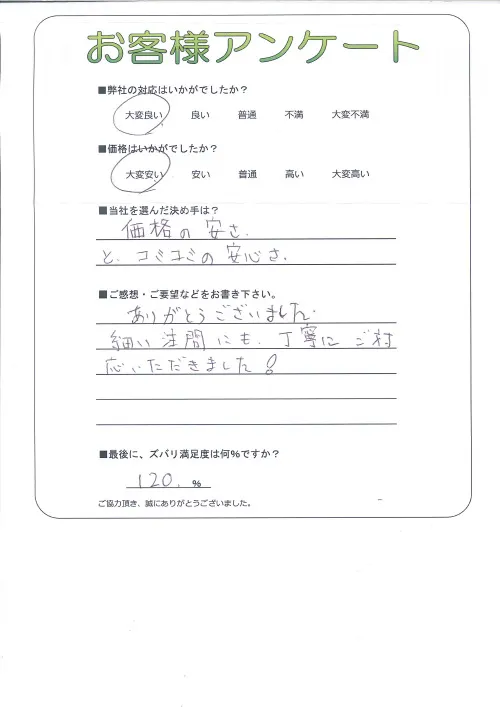 お客様アンケート
■弊社の対応はいかがでしたか？
大変良い 良い 普通 不満 大変不満
■価格はいかがでしたか？
大変安い 安い 普通 高い 大変高い
■当社を選んだ決め手は？
価格の安さ.
と、コミコミの安心さ.
■ご感想・ご要望などをお書き下さい。
ありがとうございました.
細い注問にも、丁寧にご対
応いただきました！
■最後に、ズバリ満足度は何%ですか？
120. %
ご協力頂き、誠にありがとうございました。